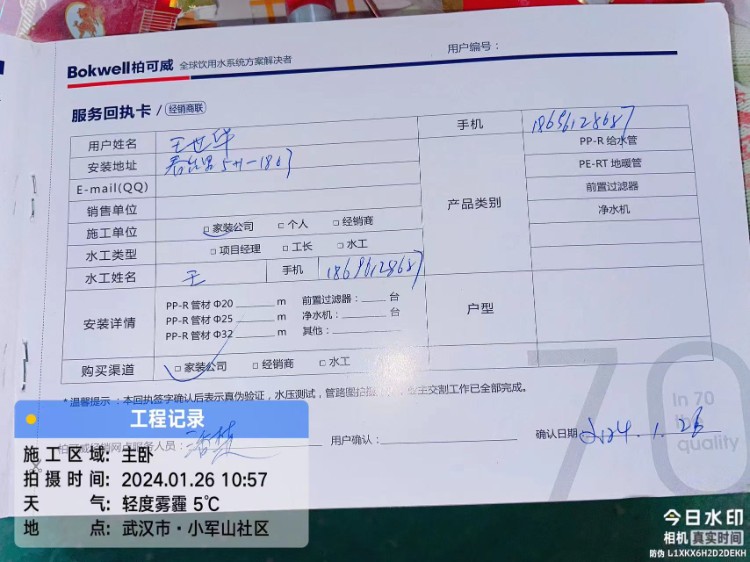 Bokwell柏可威 全球饮用水系统方案解决者
用户编号:
服务回执卡/ 经销商联
用户姓名 王世华 手机 18696128687
安装地址 5-11-1803 PP-R 给水管
E-mail(QQ) PE-RT 地暖管
销售单位 产品类别 前置过滤器
施工单位 □家装公司 □个人 □经销商 净水机
水工类型 □项目经理 □工长 □水工
水工姓名 王 手机 18696128687
安装详情 户型
PP-R 管材 Φ20 m 前置过滤器: 台
PP-R 管材 Φ25 m 净水机: 台
PP-R 管材 Φ32 m 其他:
购买渠道 □家装公司 □经销商 □水工
*温馨提示:本回执签字确认后表示真伪验证,水压测试,管路图拍照 业主交割工作已全部完成。
柏可威经销网点服务人员: 用户确认: 确认日期 2024.1.26
70
In 70
the
quality
工程记录
施工区域: 主卧
拍摄时间: 2024.01.26 10:57
天气: 轻度雾霾 5℃
地点: 武汉市·小军山社区
今日水印
相机 真实时间
防伪 L1XKX6H2D2DEKH